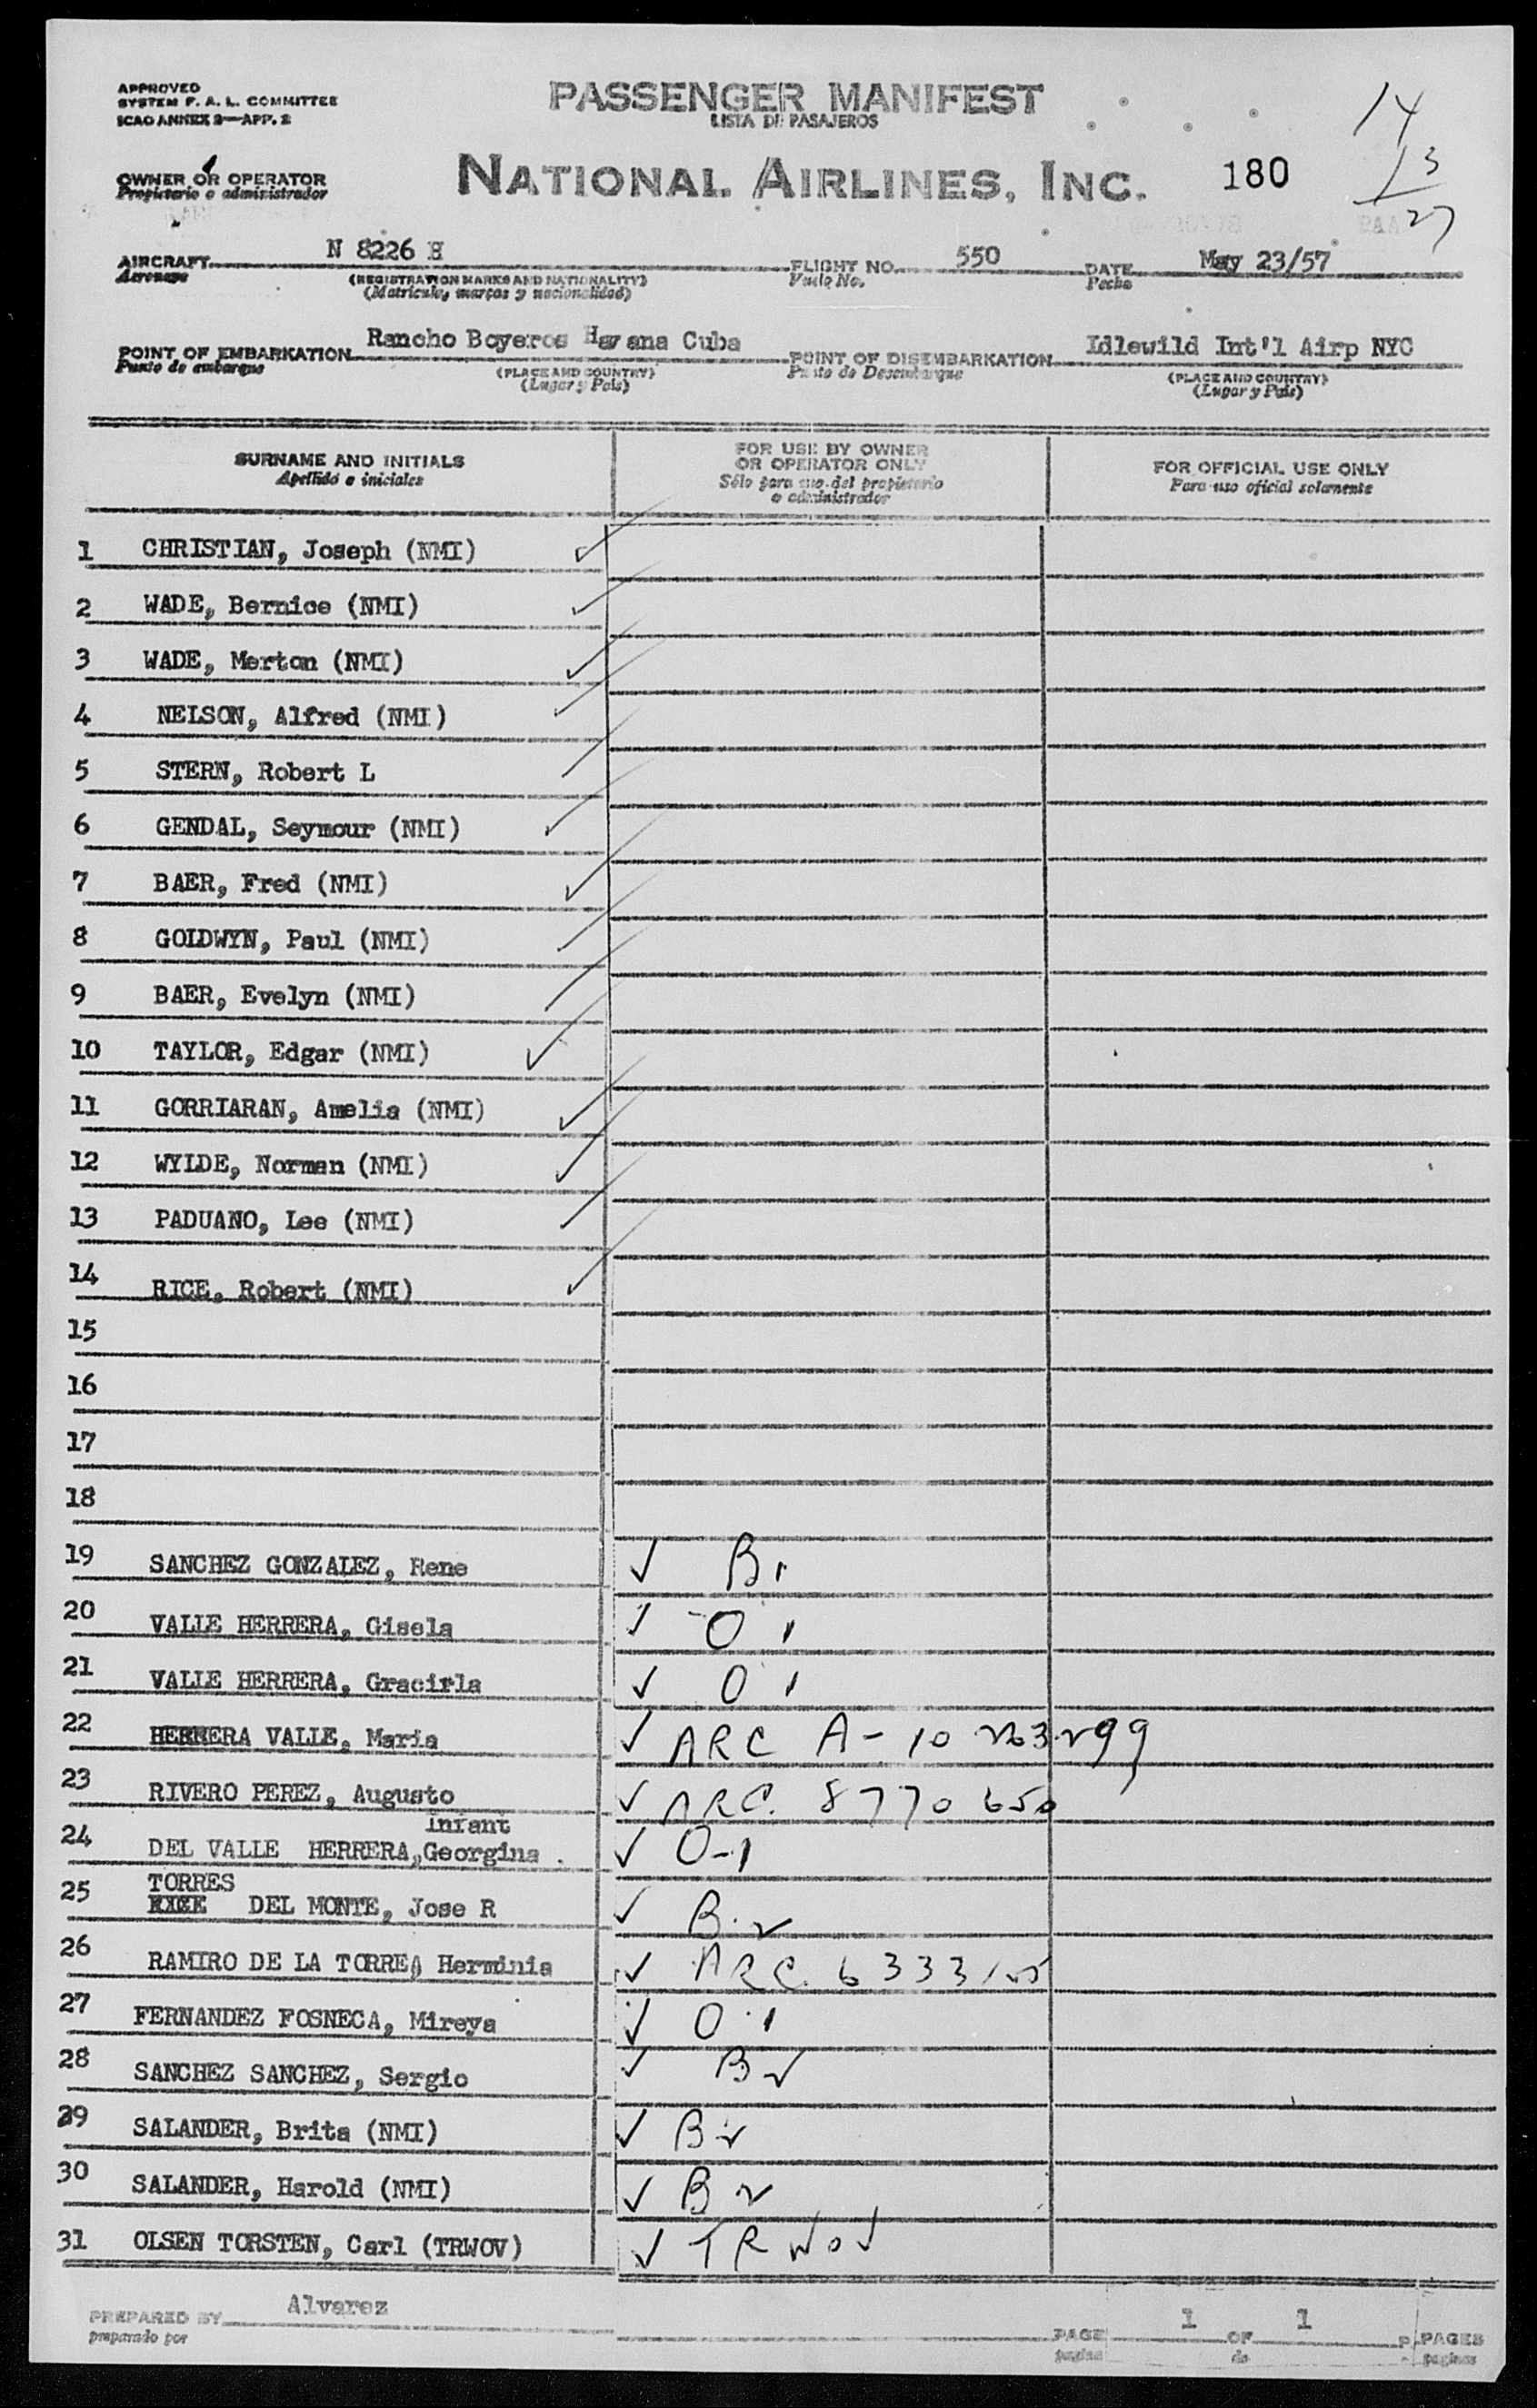 APPROVED
SYSTEM F. A. L. COMMITTEE
ICAO ANNEX 9—APP. 2
PASSENGER MANIFEST
LISTA DE PASAJEROS
14
13
27
OWNER OR OPERATOR
Propietario o administrador
NATIONAL AIRLINES, INC.
180
AIRCRAFT N 8226 H FLIGHT NO. 550 DATE May 23/57
Aeronave (REGISTRATION MARKS AND NATIONALITY) Vuelo No. Fecha
(Matricula, marcas y nacionalidad)
POINT OF EMBARKATION Rancho Boyeros Havana Cuba POINT OF DISEMBARKATION Idlewild Int'l Airp NYC
Punto de embarque (PLACE AND COUNTRY) Punto de Desembarque (PLACE AND COUNTRY)
(Lugar y Pais) (Lugar y Pais)
SURNAME AND INITIALS
Apellido e iniciales
FOR USE BY OWNER
OR OPERATOR ONLY
Sólo para uso del propietario
o administrador
FOR OFFICIAL USE ONLY
Para uso oficial solamente
1 CHRISTIAN, Joseph (NMI) ✓
2 WADE, Bernice (NMI) ✓
3 WADE, Merton (NMI) ✓
4 NELSON, Alfred (NMI) ✓
5 STERN, Robert L ✓
6 GENDAL, Seymour (NMI) ✓
7 BAER, Fred (NMI) ✓
8 GOLDWYN, Paul (NMI) ✓
9 BAER, Evelyn (NMI) ✓
10 TAYLOR, Edgar (NMI) ✓
11 GORRIARAN, Amelia (NMI) ✓
12 WYLDE, Norman (NMI) ✓
13 PADUANO, Lee (NMI) ✓
14 RICE, Robert (NMI) ✓
15
16
17
18
19 SANCHEZ GONZALEZ, Rene ✓ B1
20 VALLE HERRERA, Gisela ✓ O 1
21 VALLE HERRERA, Gracirla ✓ O 1
22 HERRERA VALLE, Maria ✓ ARC A-10 263 299
23 RIVERO PEREZ, Augusto ✓ ARC. 8770 650
Infant
24 DEL VALLE HERRERA, Georgina . ✓ O-1
TORRES
25 DEL MONTE, Jose R ✓ B.2
26 RAMIRO DE LA TORRE, Herminia ✓ ARC. 6333155
27 FERNANDEZ FOSNECA, Mireya ✓ O 1
28 SANCHEZ SANCHEZ, Sergio ✓ B 2
29 SALANDER, Brita (NMI) ✓ B 2
30 SALANDER, Harold (NMI) ✓ B 2
31 OLSEN TORSTEN, Carl (TRWOV) ✓ TRWOV
PREPARED BY Alvarez PAGE 1 OF 1 PAGES
preparado por pagina de paginas